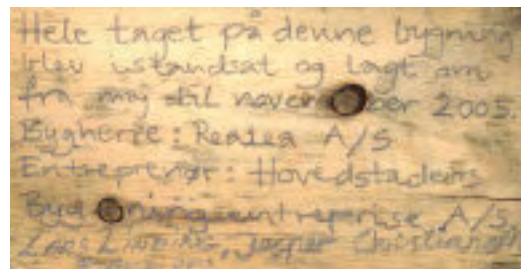 Hele taget på denne bygning
blev istandsat og lagt om
fra maj til november 2005.
Bygherre: Realea A/S
Entreprenør: Hovedstadens
Bygningsentreprise A/S
Lars, Jesper Christiansen